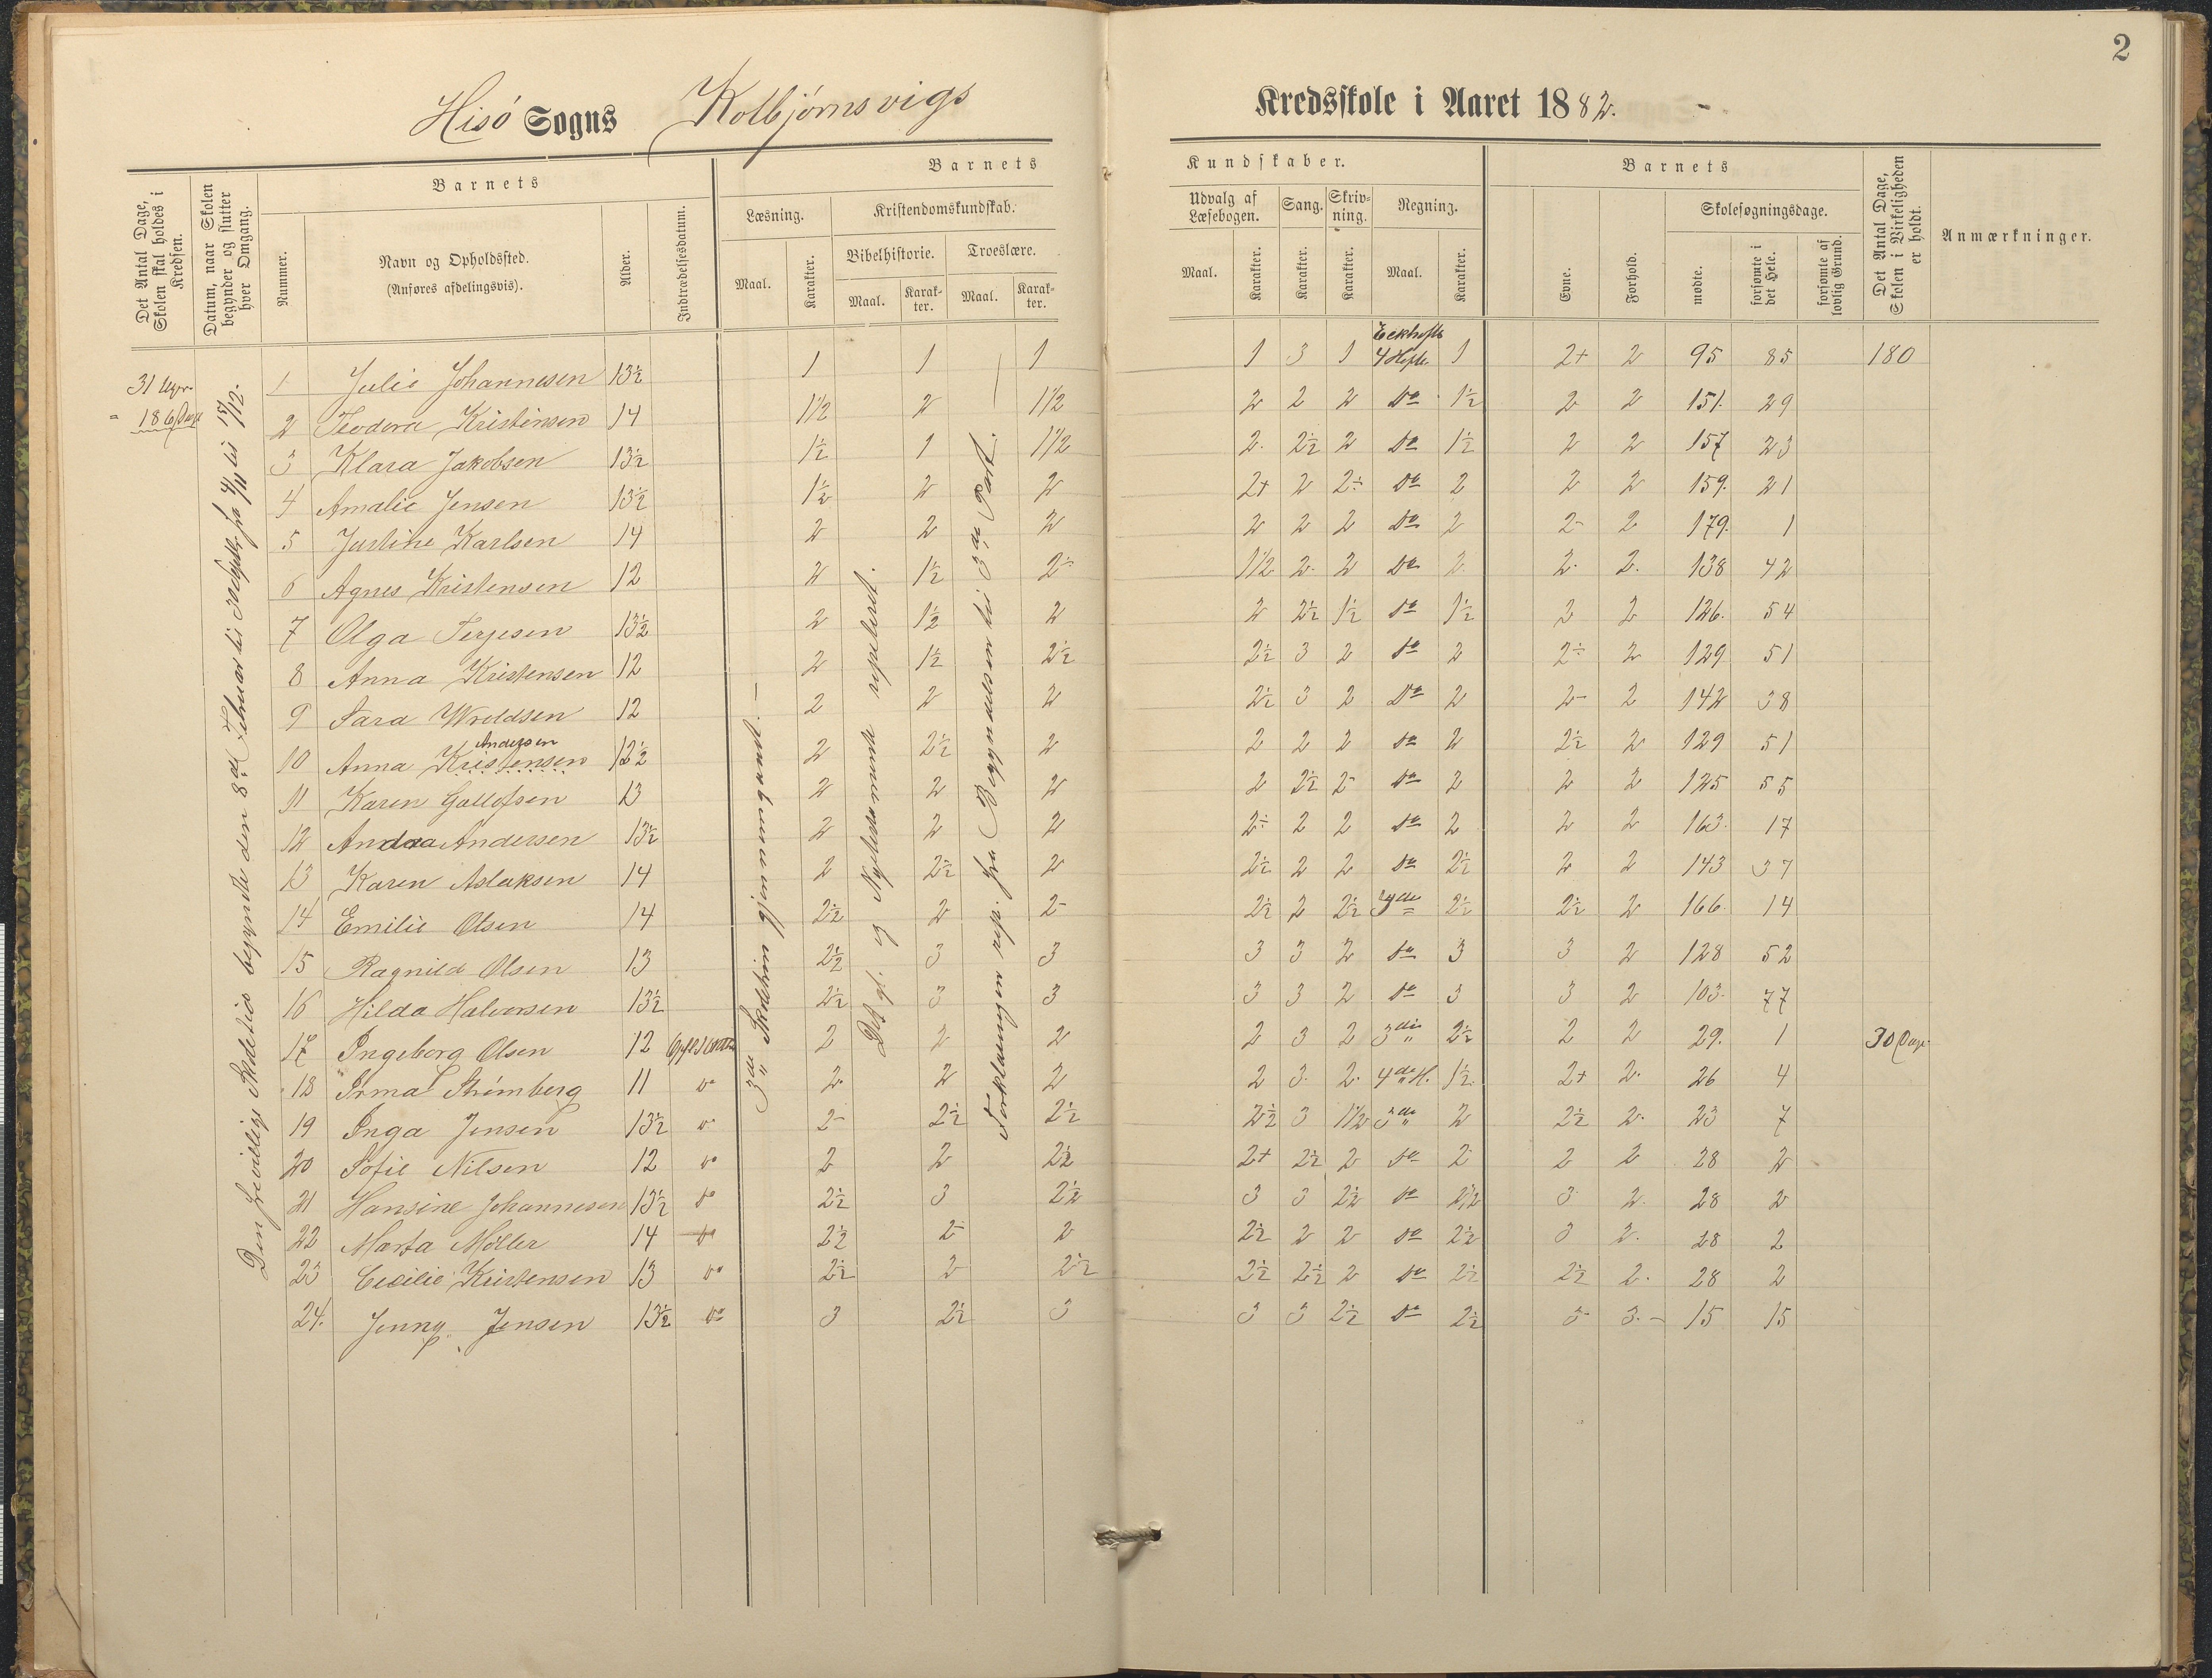 2
Hisö Sogns Kolbjörnsvigs Kredsskole i Aaret 1882.
Det Antal Dage, Skolen skal holdes i Kredsen.
Datum, naar Skolen begynder og slutter hver Omgang.
Barnets
Nummer.
Navn og Opholdssted.
(Anføres afdelingsvis).
Alder.
Indtrædelsesdatum.
Barnets Kundskaber.
Læsning.
Maal.
Karakter.
Kristendomskundskab.
Bibelhistorie.
Maal.
Karakter.
Troeslære.
Maal.
Karakter.
Udvalg af Læsebogen.
Maal.
Karakter.
Sang.
Karakter.
Skrivning.
Karakter.
Regning.
Maal.
Karakter.
Barnets
Evne.
Forhold.
Skolesøgningsdage.
mødte.
forsømte i det Hele.
forsømte af lovlig Grund.
Det Antal Dage, Skolen i Virkeligheden er holdt.
Anmærkninger.
31 Uger
= 186 Dage
Den frivillige Skoletid begyndte den 8de Februar til
3die Skoletrin gjennemgaaet.
og Nyetestamente repeteret.
Forklaringen rep. fra Begyndelsen til 3die Part.
1 Julie Johannesen 13½ 1 1 1 1 3 1 Eckhofts 4 Hefte 1 2+ 2 95 85 180
2 Teodora Kristensen 14 1½ 2 1½ 2 2 2 Do 1½ 2 2 151. 29
3 Klara Jakobsen 13½ 1½ 1 1½ 2. 2½ 2 Do 1½ 2 2 157 23
4 Amalie Jensen 13½ 1½ 2 2 2+ 2 2÷ Do 2 2 2 159. 21
5 Justine Karlsen 14 2 2 2 2 2 2 Do 2 2- 2 179. 1
6 Agnes Kristensen 12 2 1½ 2- 1½ 2. 2 Do 2. 2. 2. 138 42
7 Olga Terjesen 13½ 2 1½ 2 2 2½ 1½ Do 1½ 2 2 126. 54
8 Anna Kristensen 12 2 1½ 2½ 2½ 3 2 Do 2 2÷ 2 129 51
9 Sara Wroldsen 12 2 2 2 2½ 3 2 Do 2 2- 2 142 38
10 Anna Kristensen Andersen 12½ 2 2½ 2 2 2 2 Do 2 2½ 2 129 51
11 Karen Gullofsen 13 2 2 2 2 2½ 2- Do 2 2 2 125 55
12 Andrea Andersen 13½ 2 2 2 2÷ 2 2 Do 2 2 2 163. 17
13 Karen Aslaksen 14 2 2½ 2 2½ 2 2 Do 2½ 2 2 143 37
14 Emilie Olsen 14 2½ 2 2- 2½ 2 2½ 3die 2½ 2½ 2 166. 14
15 Ragnild Olsen 13 2½ 3 3 3 3 2 Do 3 3 2 128 52
16 Hilda Halvorsen 13½ 2½ 3 3 3 3 2 Do 3 3 2 103. 77
17 Ingeborg Olsen 12 2 2 2 2 3 2 3die 2½ 2 2 29. 1 30 Dage
18 Irma Strömberg 11 Do 2. 2 2 2 3. 2. 4de H. 1½ 2+ 2. 26 4
19 Inga Jensen 13½ Do 2- 2½ 2½ 2½ 3 1½ 3die 2 2½ 2. 23 7
20 Sofie Nilsen 12 Do 2 2 2½ 2+ 2½ 2 Do 2 2 2 28 2
21 Hansine Johannesen 13½ Do 2½ 3 2½ 3 3 2½ Do 2½ 3 2. 28 2
22 Marta Möller 14 Do 2½ 2- 2 2½ 2 2 Do 2½ 3 2. 28 2
23 Cecilie Kristensen 13 Do 2½ 2 2½ 2½ 2½ 2 Do 2½ 2½ 2. 28 2
24. Jenny Jensen 13½ Do 3 2½ 3 3 3 2½ Do 2½ 3 3.- 15 15